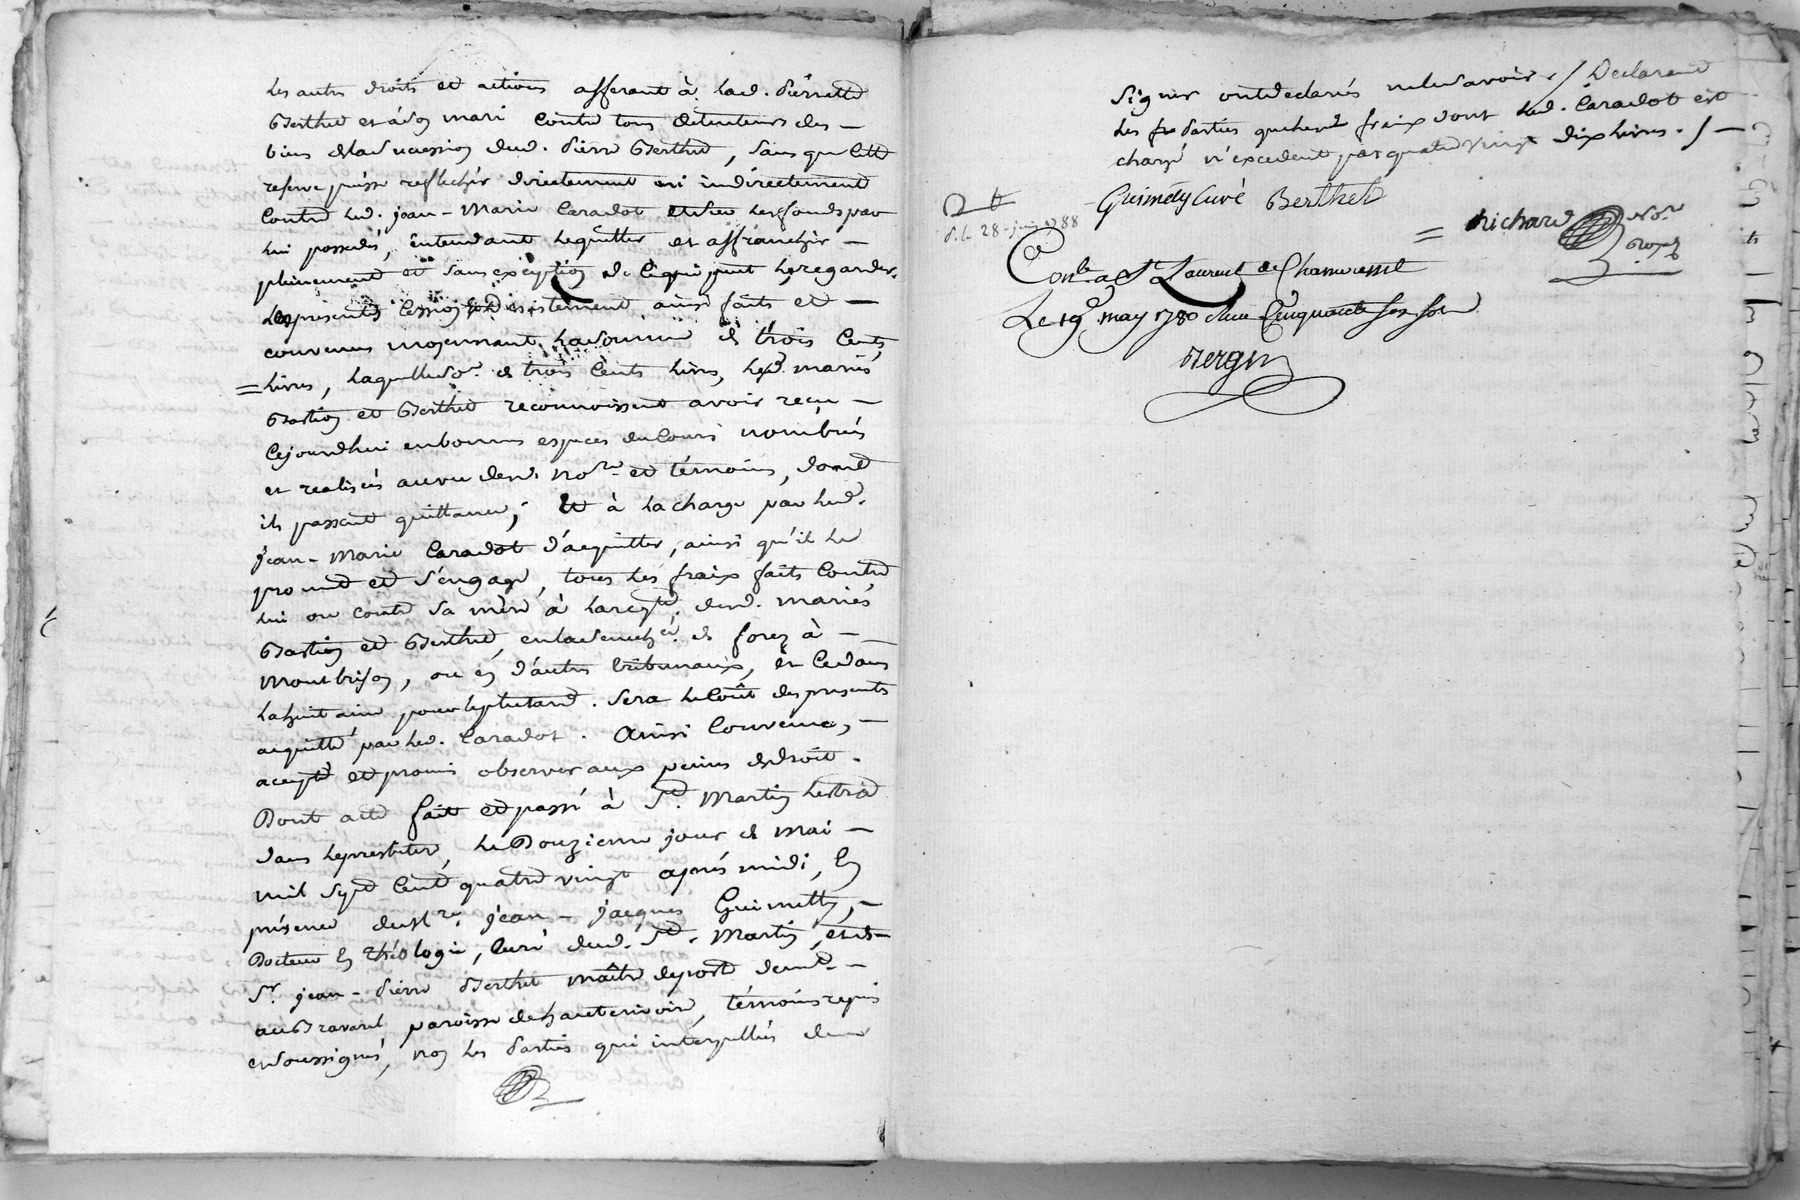 les autres droits et actions afferant à lad. Pierrette
Berthet et à son mari contre tous détenteurs des —
biens de la succession dud. Pierre Berthet, sans que cette
reserve puisse reflechir directement ni indirectement
contre led. jean-Marie Caradot et sur les fonds par
lui possedés, entendant le quitter et affranchir —
pleinement et sans exception de ce qui peut les regarder.
les presents cession et desistement ainsi faits et —
convenus moyennant la somme de trois cents
= livres, laquelle so.e de trois cents livres, lesd. mariés
Bastion et Berthet reconnoissent avoir reçu —
cejourdhui en bonnes especes du cours nombrées
et realisées au vu desd. no.re et témoins, dont
ils passent quittance; et à la charge par led.
jean-Marie Caradot d'acquitter, ainsi qu'il le
promet et s'engage, tous les fraix faits contre
lui ou contre sa mere à la req.te desd. mariés
Bastion et Berthet, en la senech.ée de forez à —
Montbrison, ou en d'autres tribunaux, et ce dans
la huitaine pour le plutard. Sera le coût des presents
acquitté par led. Caradot. Ainsi convenu, —
accepté et promis observer aux peines de droit.
Dont acte fait et passé à St. Martin Lestra
dans le presbitere, le Douzieme jour de mai —
mil sept cent quatre vingt après midi, en
présence de M.re jean-jacques Guimetty, —
Docteur en théologie, curé dud. St. Martin, et de —
Sr. jean-Pierre Berthet maître de poste dem.t —
au Bravard, paroisse de hauterivoire, témoins requis
et soussignés, non les Parties qui interpellées de
signer ont declarés ne le savoir. / Declarant
les Parties que les fraix dont led. Caradot est
chargé n'excedent pas quatre vingt dix livres. / —
Guimety curé Berthet
= Richard no.re
royal
d. le 28 juin 88
Con.lé a St Laurent de Chamousset
Le 19 may 1780 Reçu Cinquante six sols
Bergin